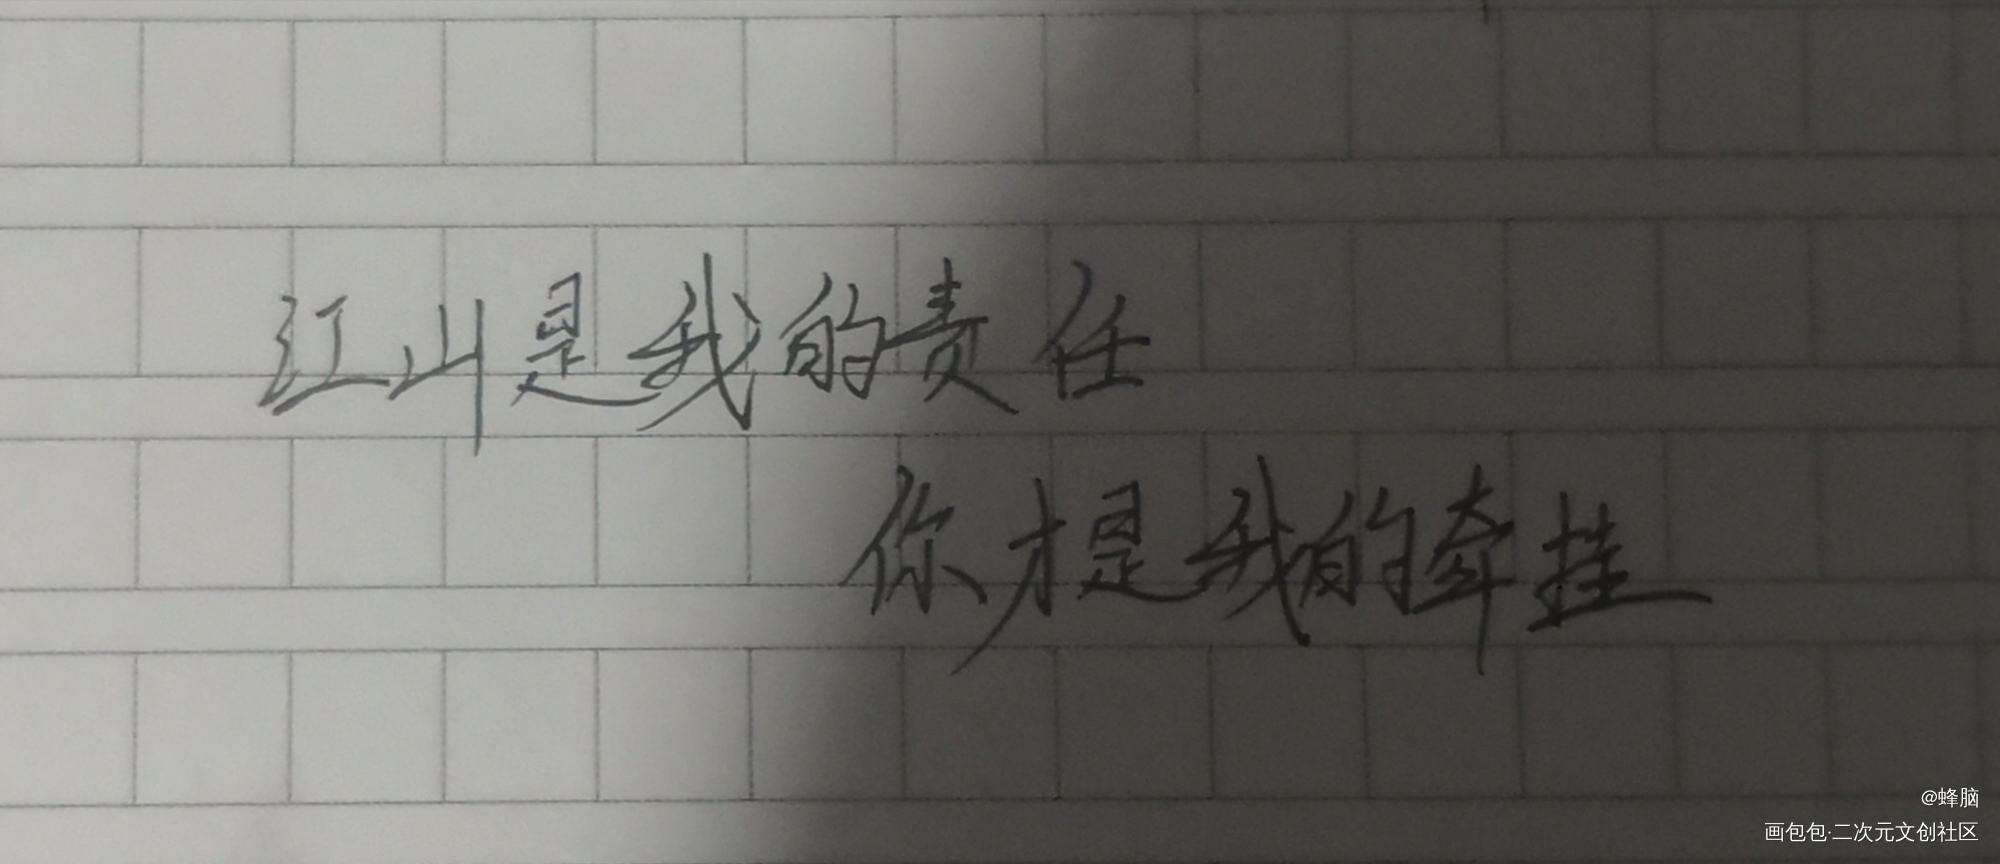 江山是我的责任
你才是我的牵挂
@蜂脑
画包包·二次元文创社区